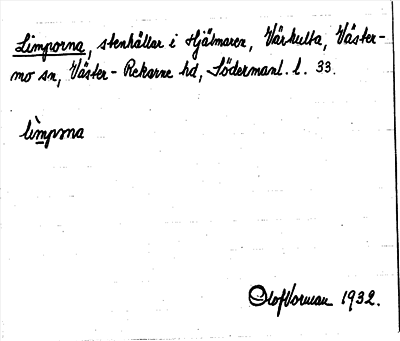 Limporna, stenhällar i Hjälmaren, Värhulta, Väster-
mo sn, Väster-Rekarne hd, Södermanl. l. 33.
lìmpona
Olof Vorman 1932.